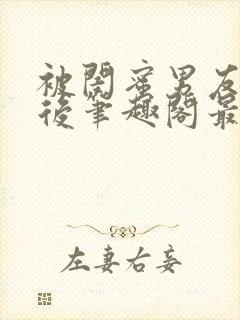 被閨蜜男友
後筆趣閣最
左妻右妾